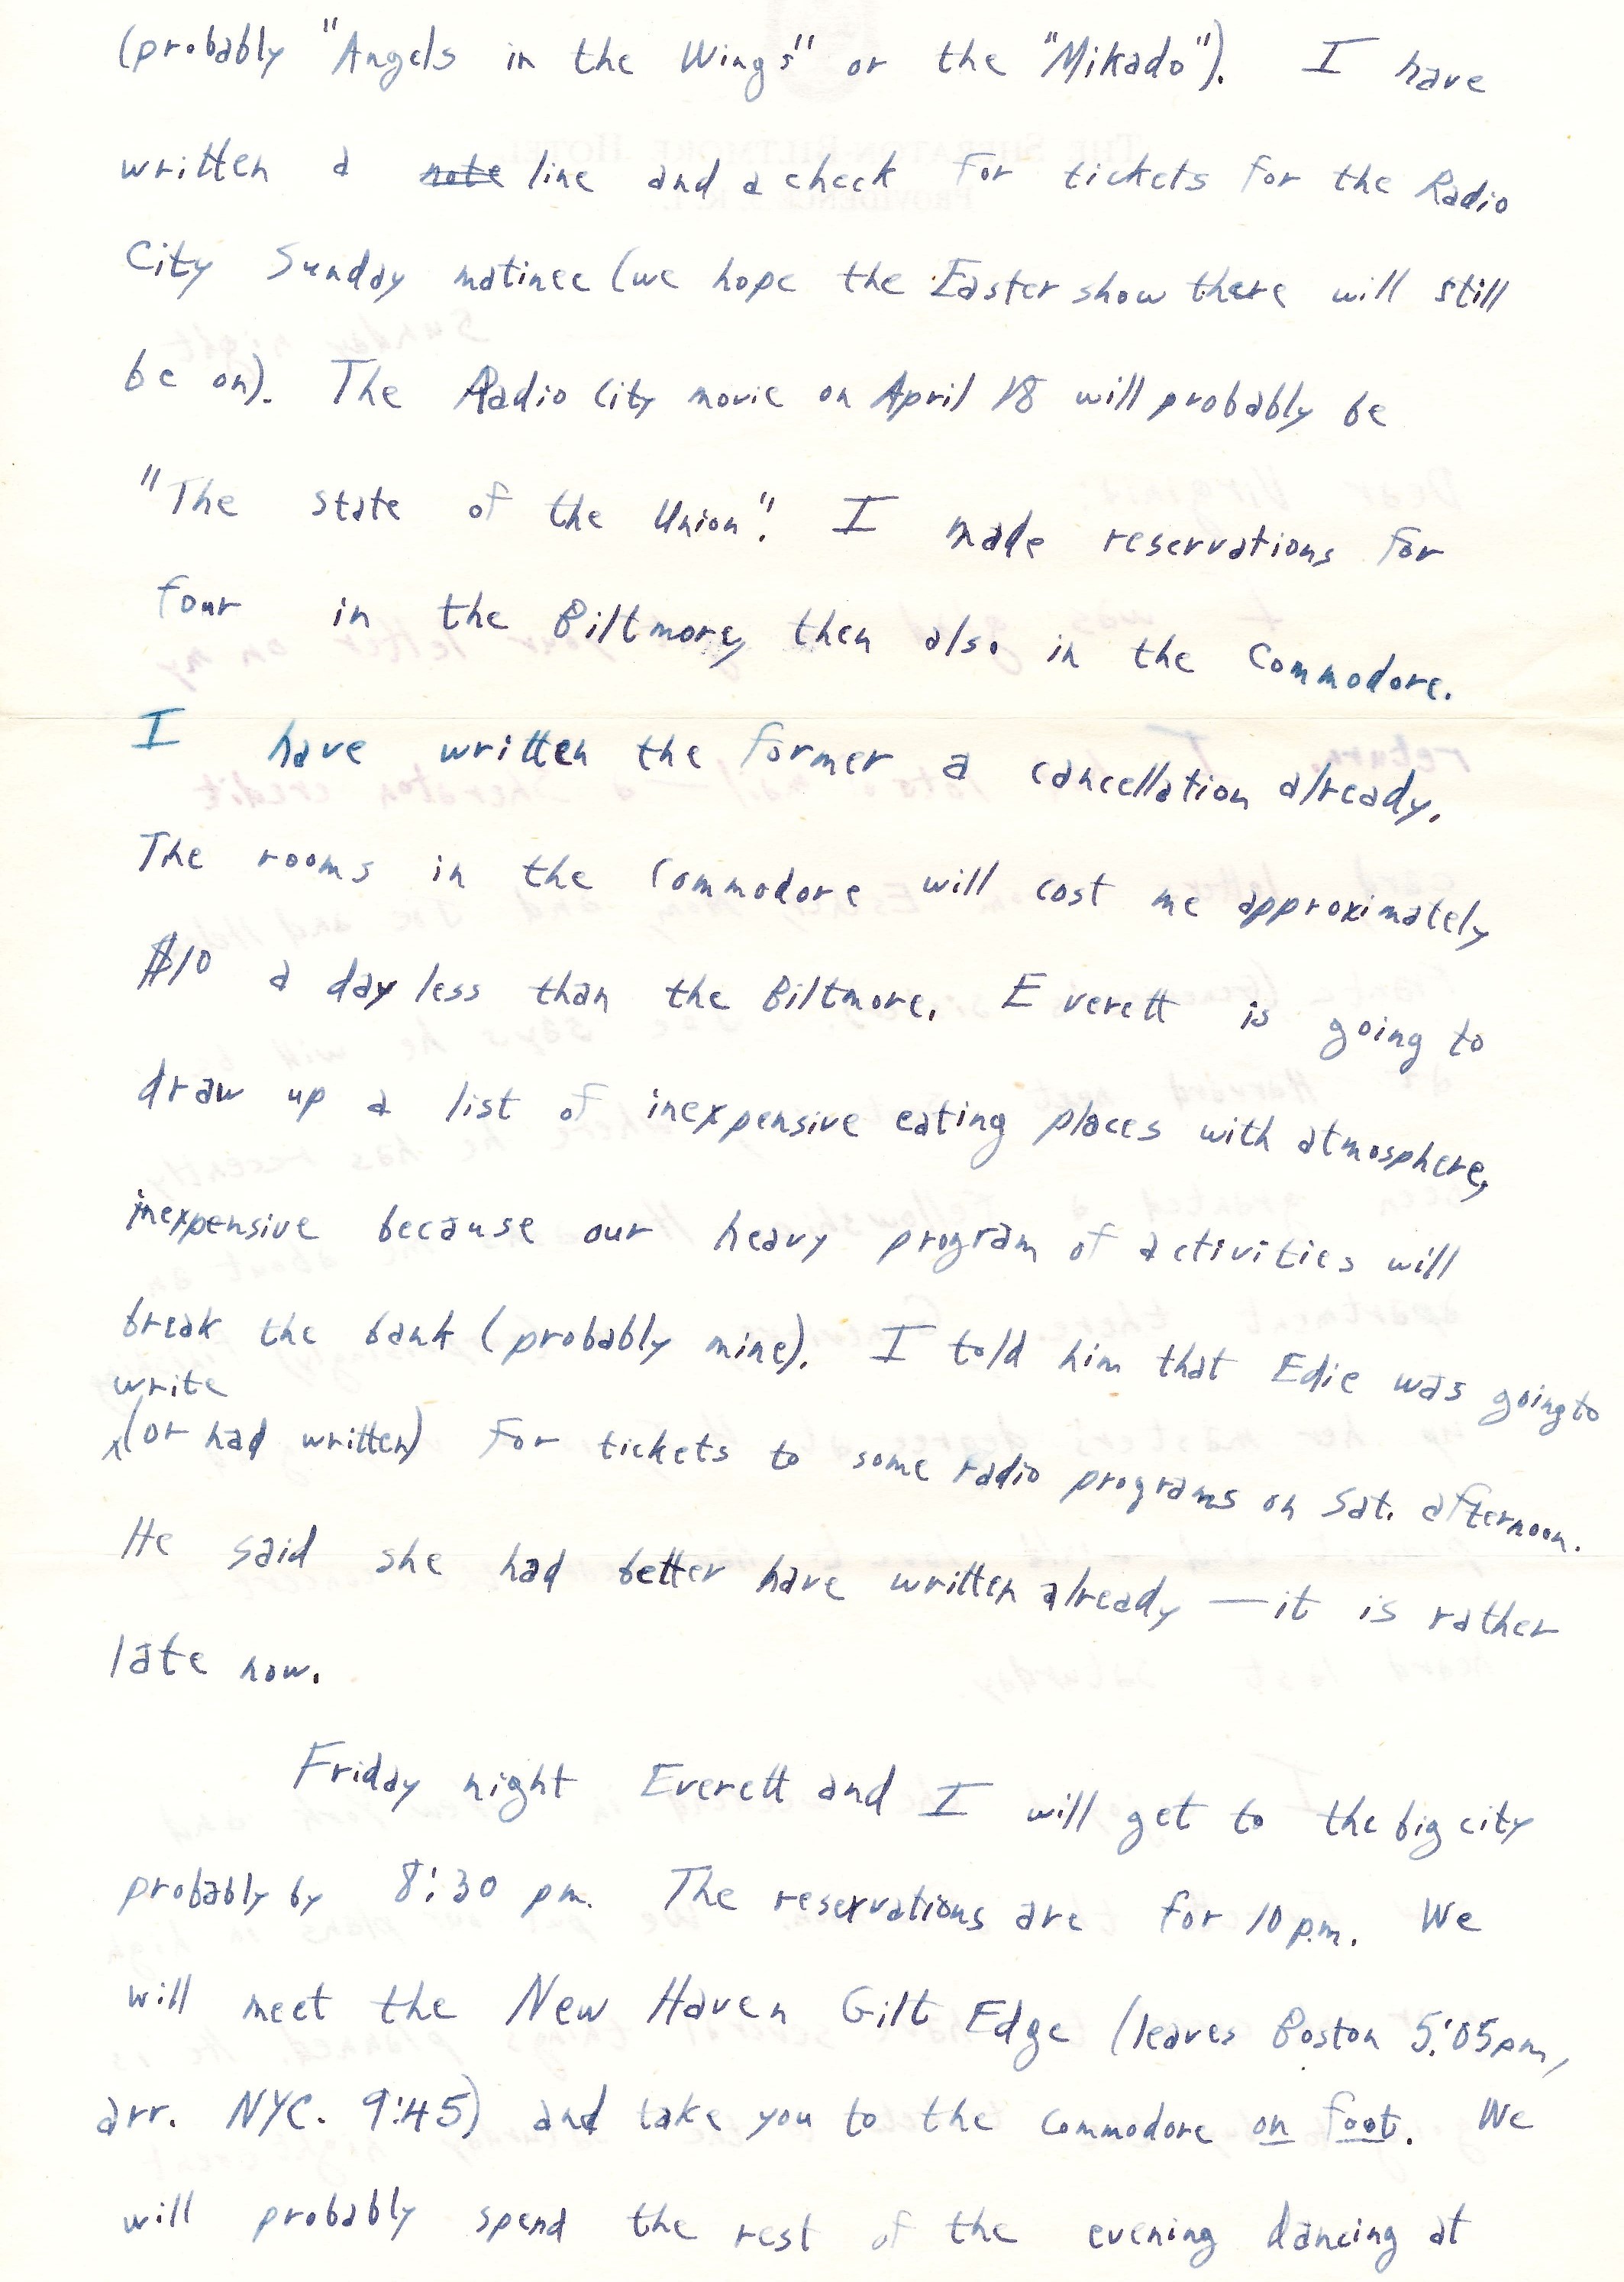 (probably "Angels in the Wings" or the "Mikado"). I have
written a note line and a check for tickets for the Radio
City Sunday matinee (we hope the Easter show there will still
be on). The Radio City movie on April 18 will probably be
"The State of the Union". I made reservations for
four in the Biltmore, then also in the Commodore.
I have written the former a cancellation already.
The rooms in the Commodore will cost me approximately
$10 a day less than the Biltmore. Everett is going to
draw up a list of inexpensive eating places with atmosphere,
inexpensive because our heavy program of activities will
break the bank (probably mine). I told him that Edie was going to
write
(or had written) for tickets to some radio programs on Sat. afternoon.
He said she had better have written already — it is rather
late now.
Friday night Everett and I will get to the big city
probably by 8:30 pm. The reservations are for 10 p.m. We
will meet the New Haven Gilt Edge (leaves Boston 5:05pm,
arr. NYC. 9:45) and take you to the Commodore on foot. We
will probably spend the rest of the evening dancing at